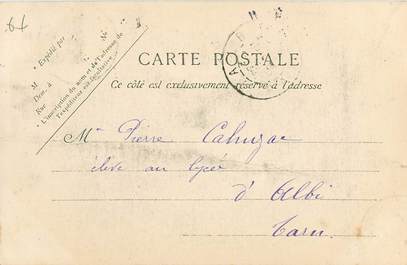 64
Expédié par
M
Dem. à
Rue Nº
L'inscription du nom et de l'adresse de
l'expéditeur est facultative.
CARTE POSTALE
Ce côté est exclusivement réservé à l'adresse
M Pierre Cahuzac
élève au lycée
d'Albi
Tarn.